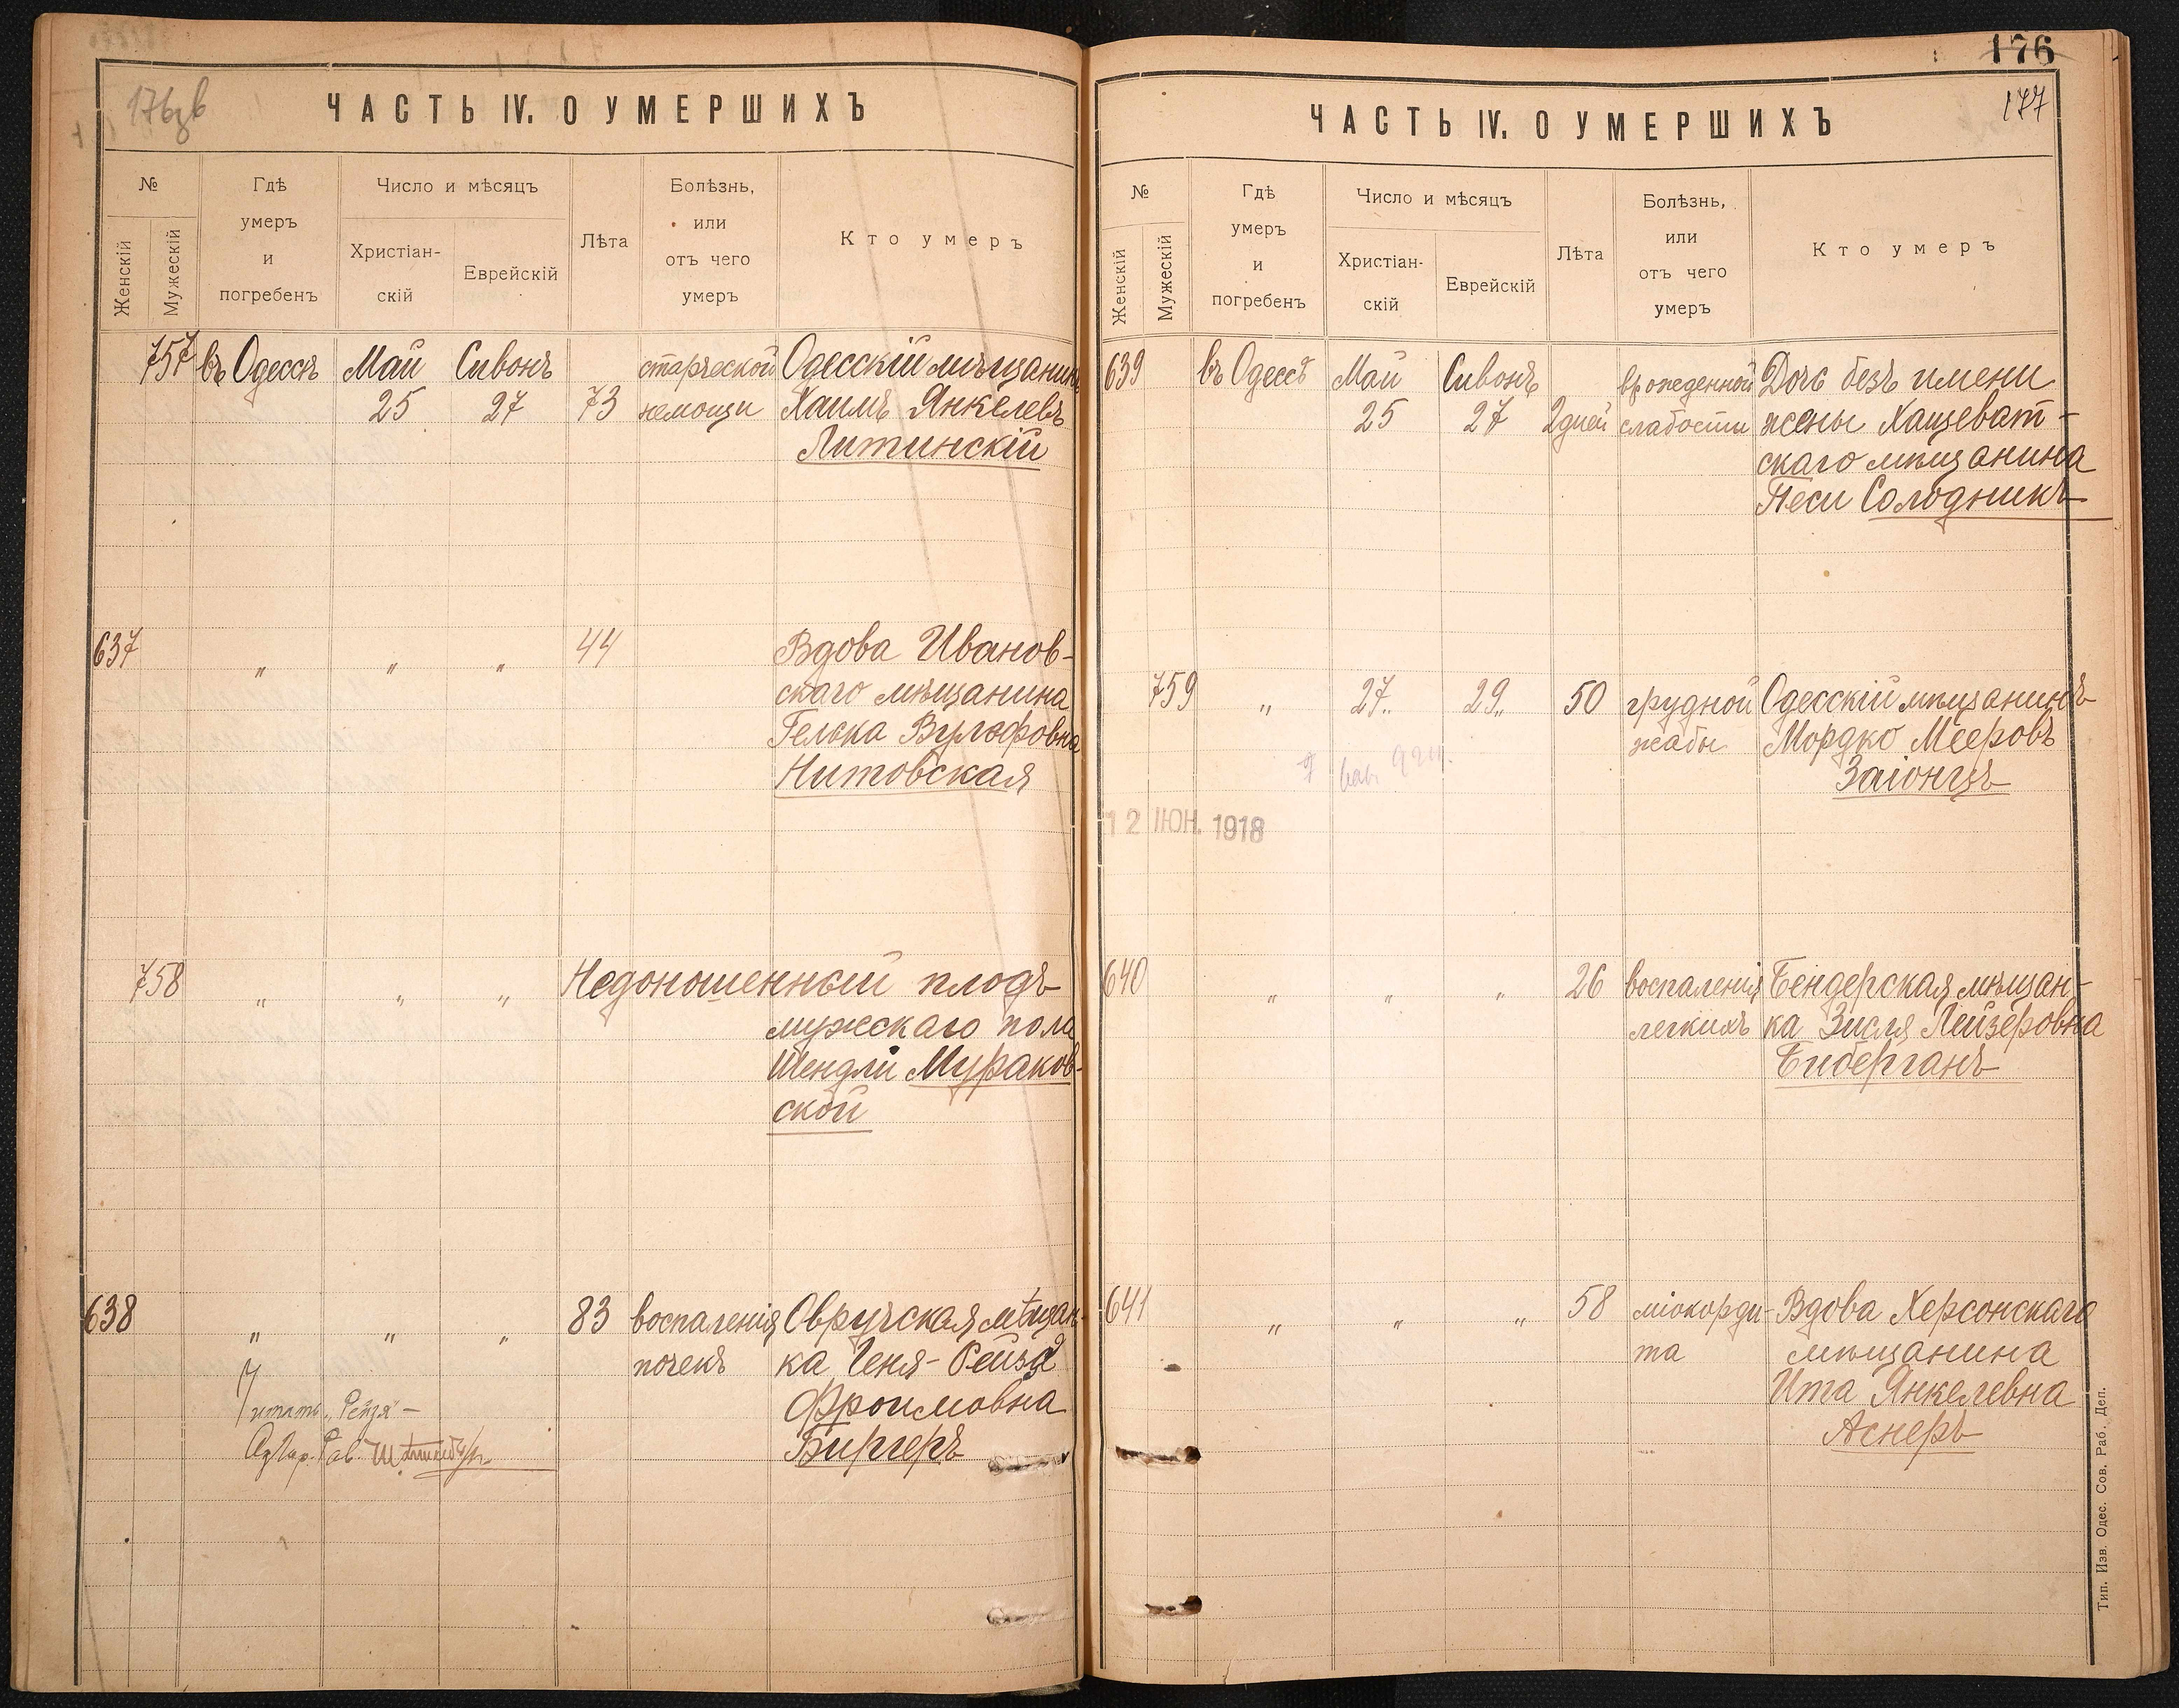 176зв
ЧАСТЬ IV. О УМЕРШИХЪ
№
Женскій
Мужескій
Гдѣ
умеръ
и
погребенъ
Число и мѣсяцъ
Христіан-
скій
Еврейскій
Лѣта
Болѣзнь,
или
отъ чего
умеръ
Кто умеръ
757 въ Одессѣ Май Сивонъ старческой Одесскій мѣщанинъ
25 27 73 немощи Хаимъ Янкелевъ
Литинскій
637 " " " 44 Вдова Иванов-
скаго мѣщанина
Гелька Вульфовна
Нитовская
758 " " " Недоношенный плодъ
мужскаго пола
Шендли Мураков-
ской
638 " " " 83 воспаленія Овручская мѣщан-
почекъ ка Геня-Рейзя
Фроимовна
Биргеръ
Читать „Рейзя" –
Од. Гор. Рав.
176
177
ЧАСТЬ IV. О УМЕРШИХЪ
№
Женскій
Мужескій
Гдѣ
умеръ
и
погребенъ
Число и мѣсяцъ
Христіан-
скій
Еврейскій
Лѣта
Болѣзнь,
или
отъ чего
умеръ
Кто умеръ
639 въ Одессѣ Май Сивонъ врожденной Дочь безъ имени
25 27 2 дней слабости жены Хащеват-
скаго мѣщанина
Песи Солодникъ
759 " 27 " 29 " 50 грудной Одесскій мѣщанинъ
жабы Мордко Мееровъ
Заіонцъ
12 ІЮН. 1918
640 " " " 26 воспаленія Бендерская мѣщан-
легкихъ ка Зисля Лейзеровна
Биберганъ
641 " " " 58 міокорди- Вдова Херсонскаго
та мѣщанина
Ита Янкелевна
Аснеръ
Тип. Изв. Одес. Сов. Раб. Деп.